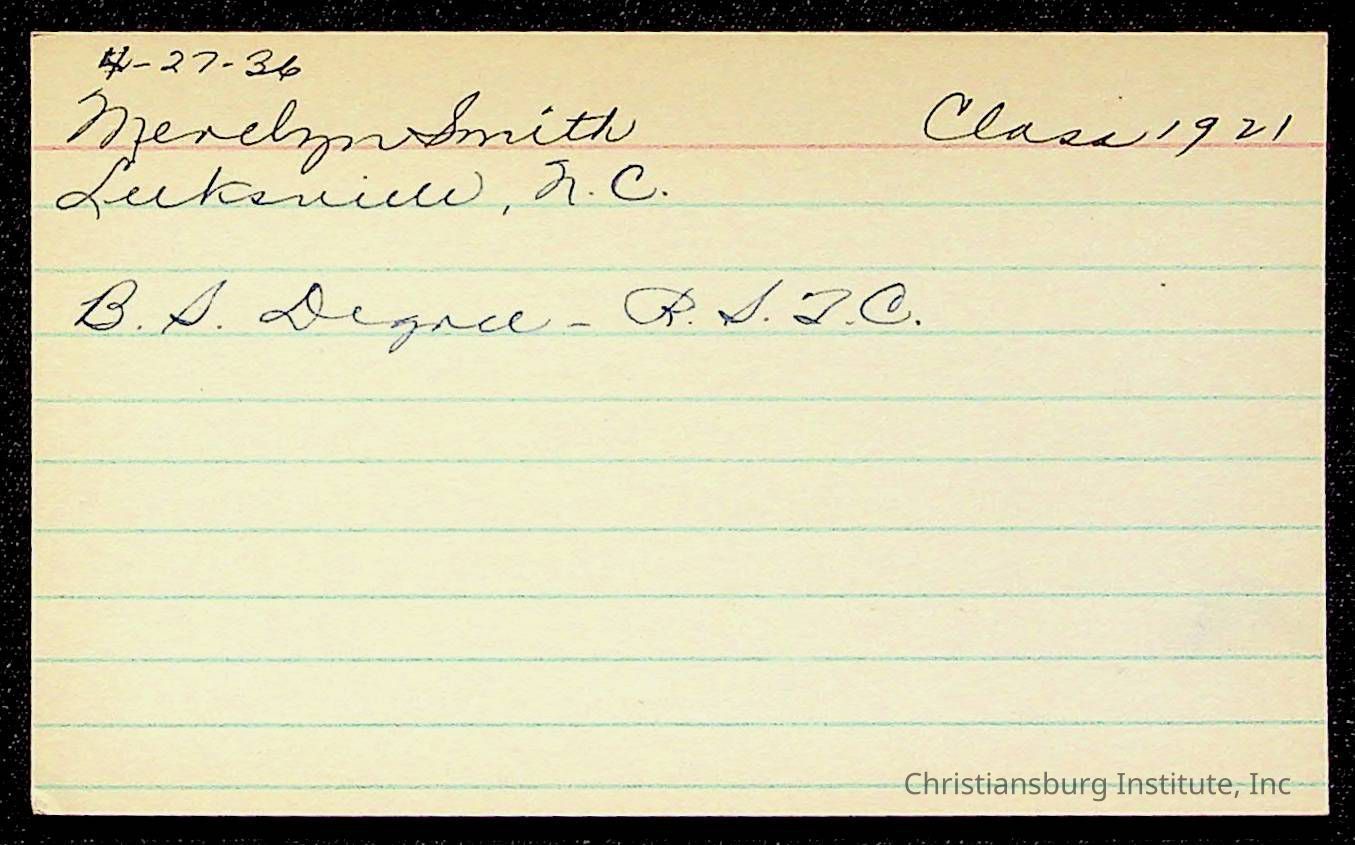 4-27-36
Merelyn Smith Class 1921
Leeksville, N.C.
B. S. Degree - R. S. T. C.
Christiansburg Institute, Inc